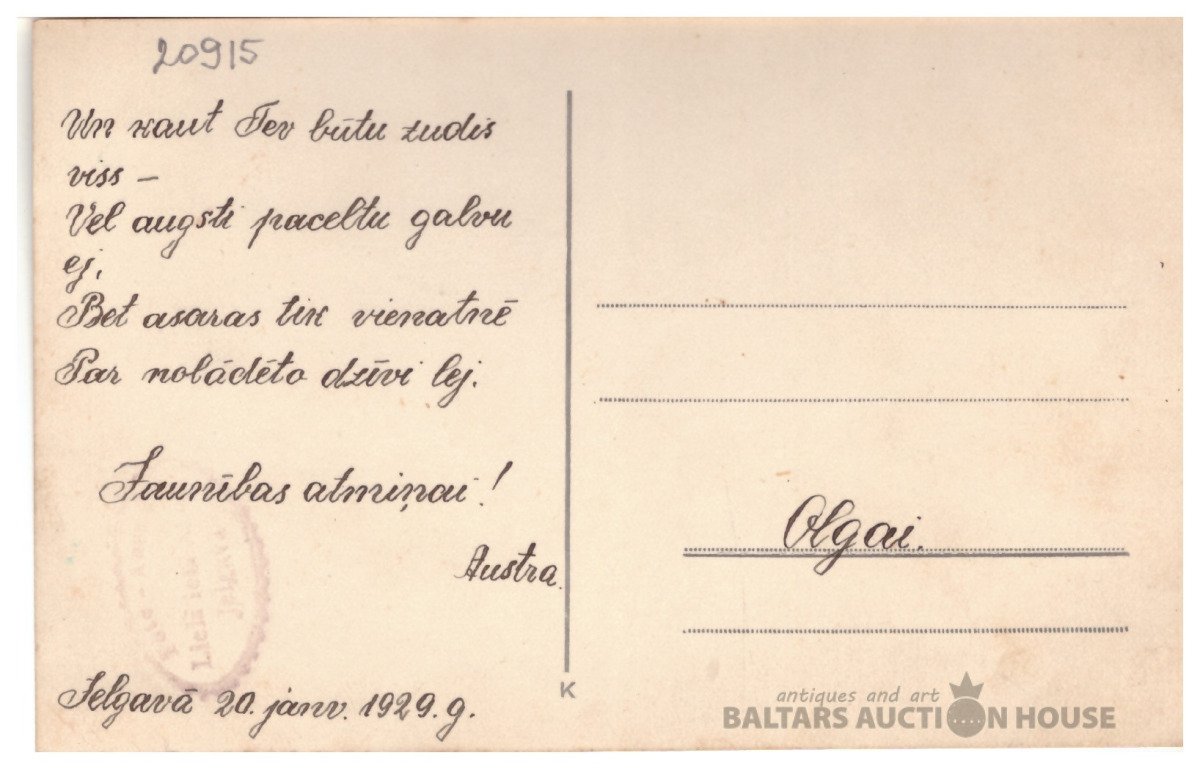 20915
Un kaut Tev būtu zudis
viss –
Vel augsti paceltu galvu
ej,
Bet asaras tik vienatnē
Par nolādēto dzīvi lej.
Jaunības atmiņai!
Austra.
Jelgavā 20. janv. 1929. g.
Foto
Lielā iela
Jelgavā
K
Olgai.
antiques and art
BALTARS AUCTION HOUSE